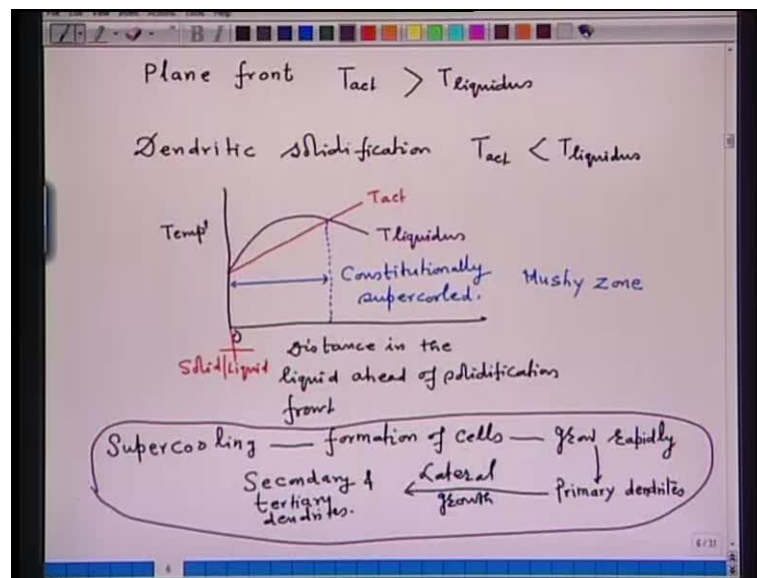 Plane front Tact > Tliquidus
Dendritic solidification Tact < Tliquidus
Tact
Temp^r
Tliquidus
Constitutionally
supercooled.
Mushy zone
0
Solid/Liquid
Distance in the
liquid ahead of solidification
front
Supercooling — formation of cells — grow rapidly
Secondary &
tertiary
dendrites.
Lateral
growth
Primary dendrites
6/31
6